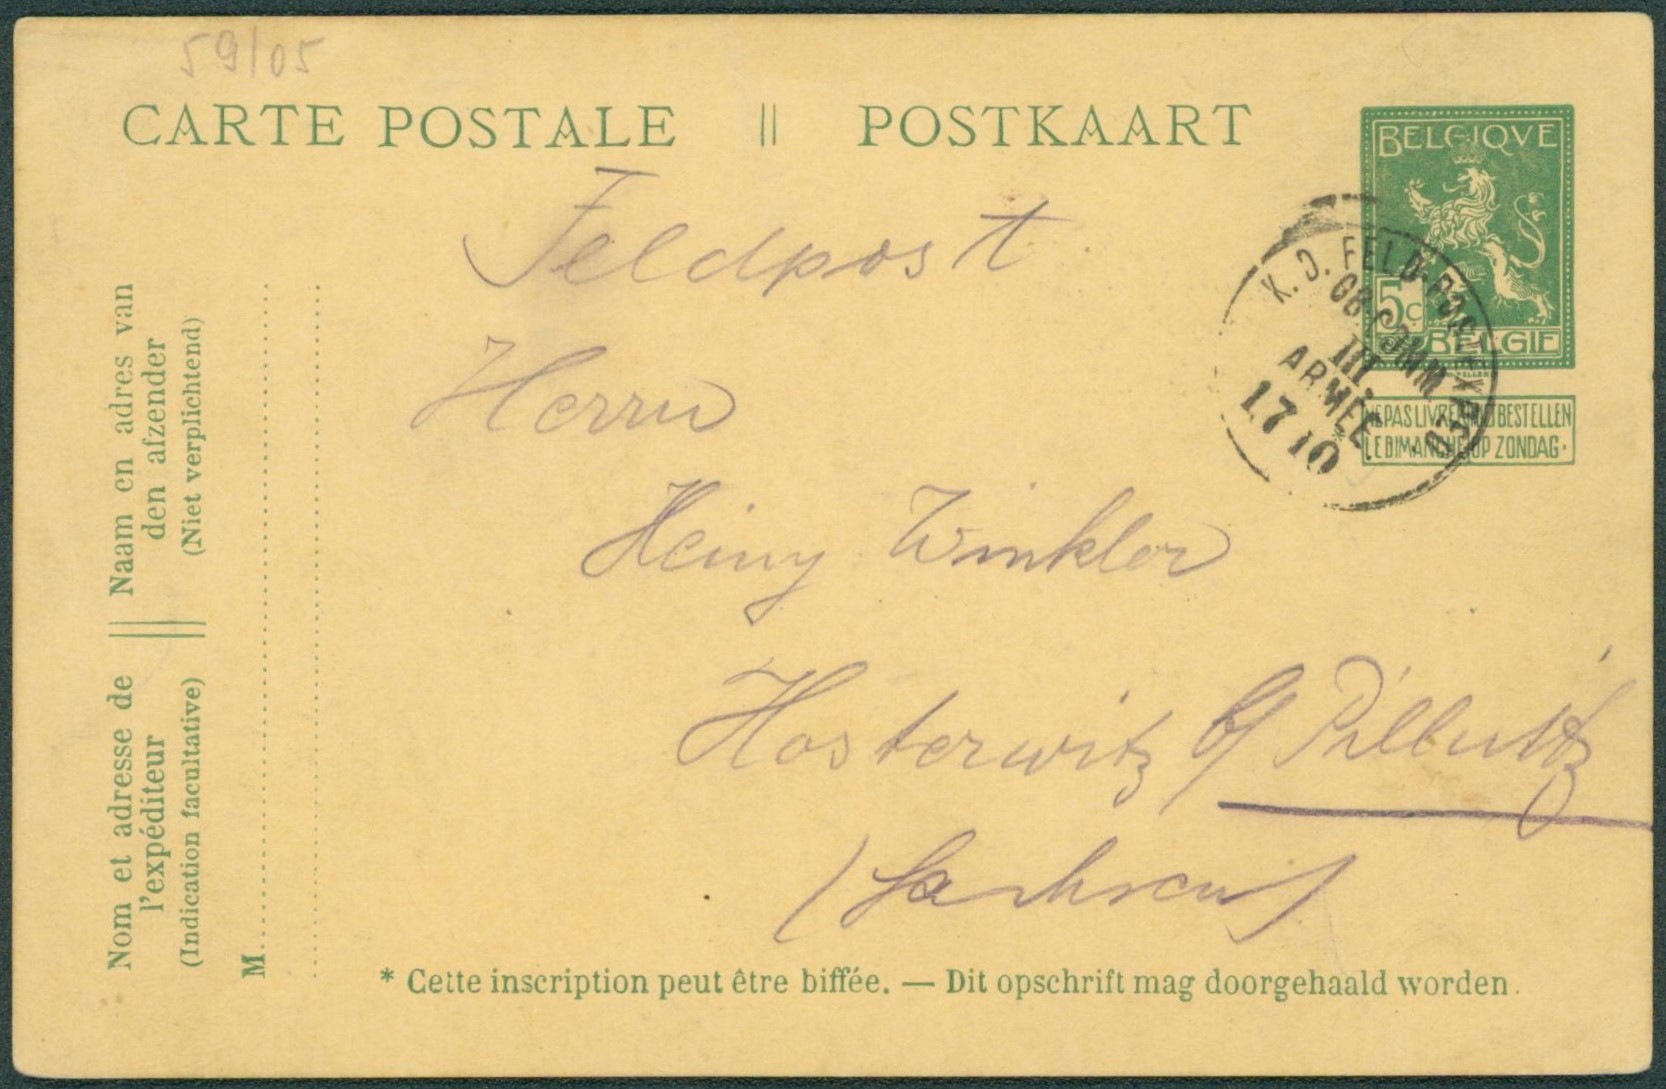 59/05
CARTE POSTALE || POSTKAART
BELGIQVE
5c
BELGIE
NE PAS LIVRER NIET BESTELLEN
LE DIMANCHE OP ZONDAG.
K. D. FELD-POSTEXPED
OB COMM.
III.
ARMEE
17 10
Feldpost
Herrn
Heiny Winkler
Hosterwitz b/ Pillnitz
(Sachsen)
Naam en adres van
den afzender
(Niet verplichtend)
Nom et adresse de
l'expéditeur
(Indication facultative)
M
* Cette inscription peut être biffée. — Dit opschrift mag doorgehaald worden.